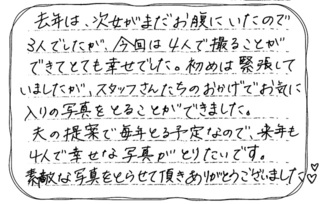 去年は、次女がまだお腹にいたので
3人でしたが、今回は4人で撮ることが
できてとても幸せでした。初めは緊張して
いましたが、スタッフさんたちのおかげでお気に
入りの写真をとることができました。
夫の提案で毎年とる予定なので、来年も
4人で幸せな写真がとりたいです。
素敵な写真をとらせて頂きありがとうございました♡♡